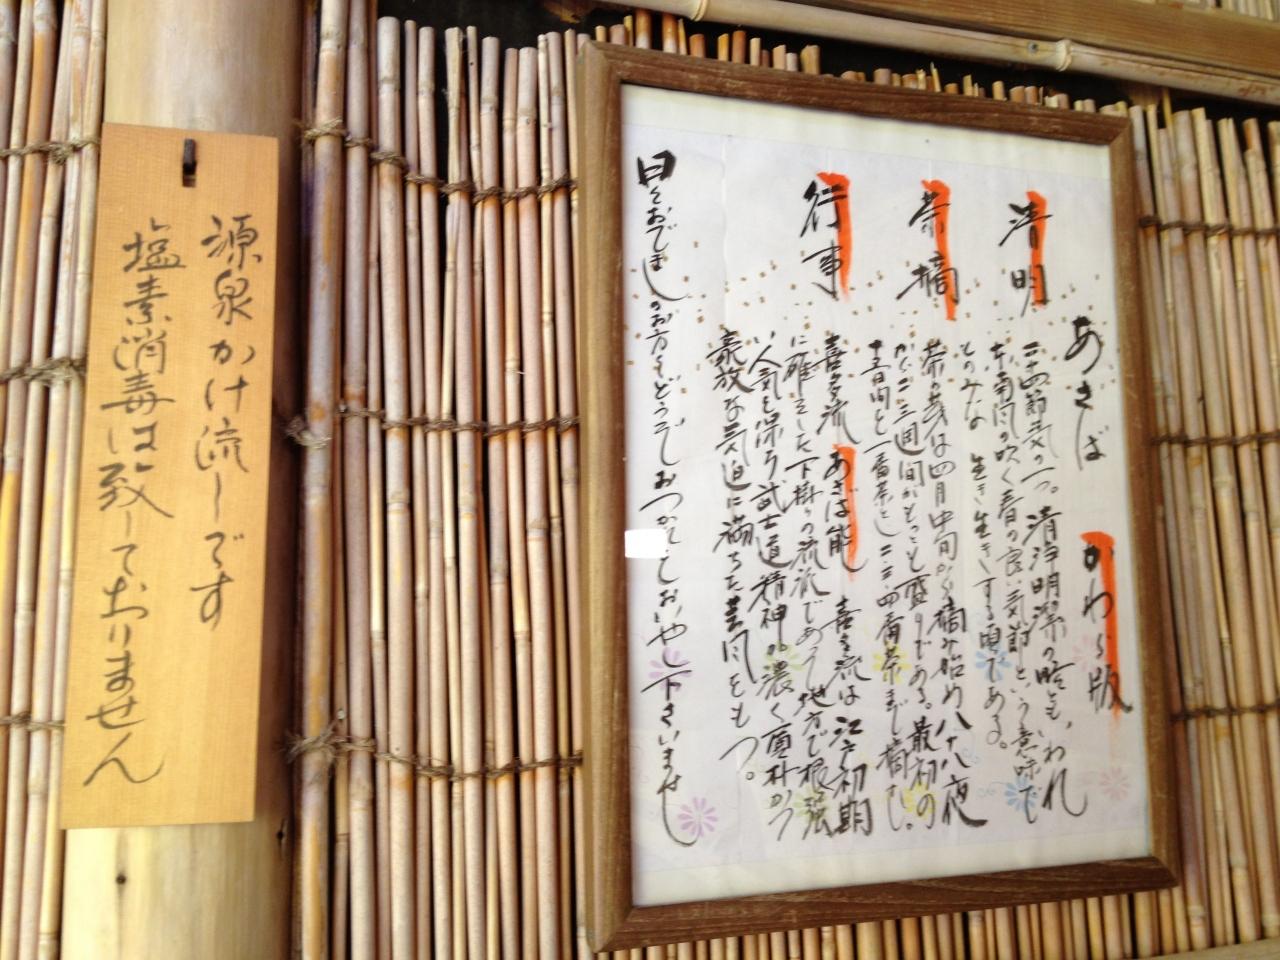 源泉かけ流しです
塩素消毒は致しておりません
あさば かわら版
清明
二十四節気の一つ。清浄明潔の略とも、われ
東南風の吹く春の良い気節という意味で
ものみな 生き生きする頃である。
茶摘
茶の芽は四月中旬から摘み始め八十八夜
から二、三週間がもっとも盛りである。最初の
十五日間を一番茶とし二・三・四番茶まで摘む。
行事
喜多流 あさば能 喜多流は江戸初期
に確立した下掛りの流派であって地方で根強
い人気を保ち武士道精神が濃く質朴かつ
豪放な気迫に満ちた芸風をもつ。
日々おでましのお方々どうぞおつかしおいや下さいませ